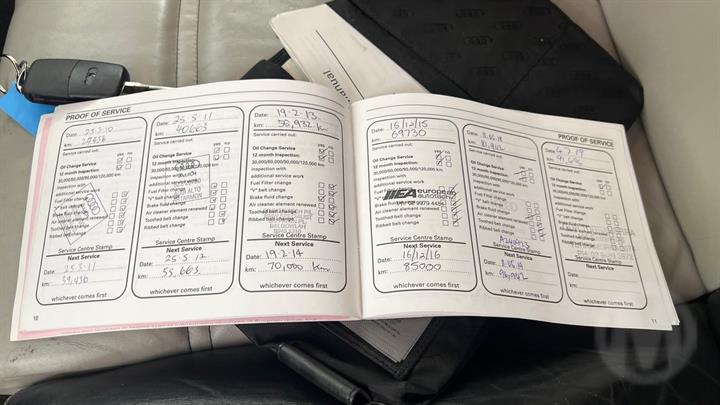 manual
PROOF OF SERVICE
Date: 25.3.10
km:
Service carried out:
yes no
Oil Change Service
12 month inspection:
30,000/60,000/90,000/120,000 km
inspection with
additional service work
Fuel Filter change
"V" belt change
Brake fluid change
Air cleaner element renewed
Toothed belt change
Ribbed belt change
Service Centre Stamp
Next Service
Date: 25-3-11
km:
whichever comes first
Date: 25.5.11
km: 40663
Service carried out:
yes no
Oil Change Service
12 month inspection:
30,000/60,000/90,000/120,000 km
inspection with
additional service work
Fuel Filter change
"V" belt change
Brake fluid change
Air cleaner element renewed
Toothed belt change
Ribbed belt change
Service Centre Stamp
Next Service
Date: 25.5.12
km: 55,663
whichever comes first
Date: 19-2-13
km: 56,932 km
Service carried out:
yes no
Oil Change Service
12 month inspection:
30,000/60,000/90,000/120,000 km
inspection with
additional service work
Fuel Filter change
"V" belt change
Brake fluid change
Air cleaner element renewed
Toothed belt change
Ribbed belt change
BALGOWLAH
Service Centre Stamp
Next Service
Date: 19.2.14
km: 70,000 km
whichever comes first
10
Date: 16/12/15
km: 69730
Service carried out:
yes no
Oil Change Service
12 month inspection:
30,000/60,000/90,000/120,000 km
inspection with
additional service work
european
autotech
Brake fluid change
Air cleaner element renewed
Toothed belt change
Ribbed belt change
Service Centre Stamp
Next Service
Date: 16/12/16
km: 85000
whichever comes first
PROOF OF SERVICE
Date:
km:
Service carried out:
yes no
Oil Change Service
12 month inspection:
30,000/60,000/90,000/120,000 km
inspection with
additional service work
Fuel Filter change
"V" belt change
Brake fluid change
Air cleaner element renewed
Toothed belt change
Ribbed belt change
Service Centre Stamp
Next Service
Date:
km:
whichever comes first
Date:
km:
Service carried out:
yes no
Oil Change Service
12 month inspection:
30,000/60,000/90,000/120,000 km
inspection with
additional service work
Fuel Filter change
"V" belt change
Brake fluid change
Air cleaner element renewed
Toothed belt change
Ribbed belt change
Service Centre Stamp
Next Service
Date:
km:
whichever comes first
11
M